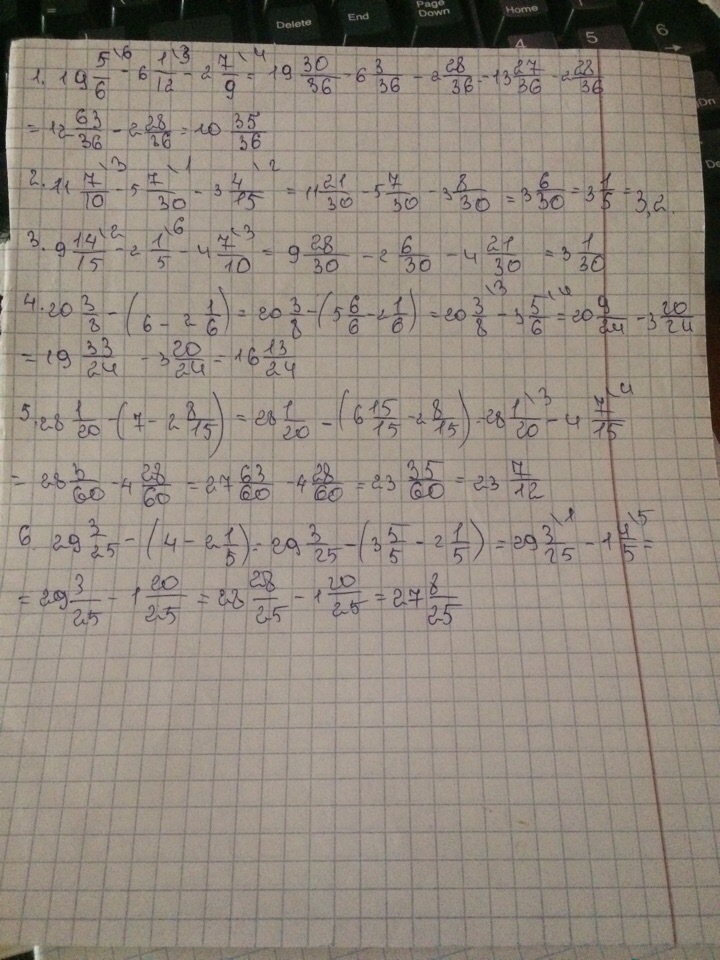 Delete End Page Down Home
A 5 6 →
1. 19 5/6\6 - 6 1/12\3 - 2 7/9\4 = 19 30/36 - 6 3/36 - 2 28/36 = 13 27/36 - 2 28/36
= 12 63/36 - 2 28/36 = 10 35/36
2. 11 7/10\3 - 5 7/30\1 - 3 4/15\2 = 11 21/30 - 5 7/30 - 3 8/30 = 3 6/30 = 3 1/5 = 3,2.
3. 9 14/15\2 - 2 1/5\6 - 4 7/10\3 = 9 28/30 - 2 6/30 - 4 21/30 = 3 1/30
4. 20 3/8 - (6 - 2 1/6) = 20 3/8 - (5 6/6 - 2 1/6) = 20 3/8\3 - 3 5/6\4 = 20 9/24 - 3 20/24
= 19 33/24 - 3 20/24 = 16 13/24
5. 28 1/20 - (7 - 2 8/15) = 28 1/20 - (6 15/15 - 2 8/15) = 28 1/20\3 - 4 7/15\4
= 28 3/60 - 4 28/60 = 27 63/60 - 4 28/60 = 23 35/60 = 23 7/12
6. 29 3/25 - (4 - 2 1/5) = 29 3/25 - (3 5/5 - 2 1/5) = 29 3/25\1 - 1 4/5\5 =
= 29 3/25 - 1 20/25 = 28 28/25 - 1 20/25 = 27 8/25